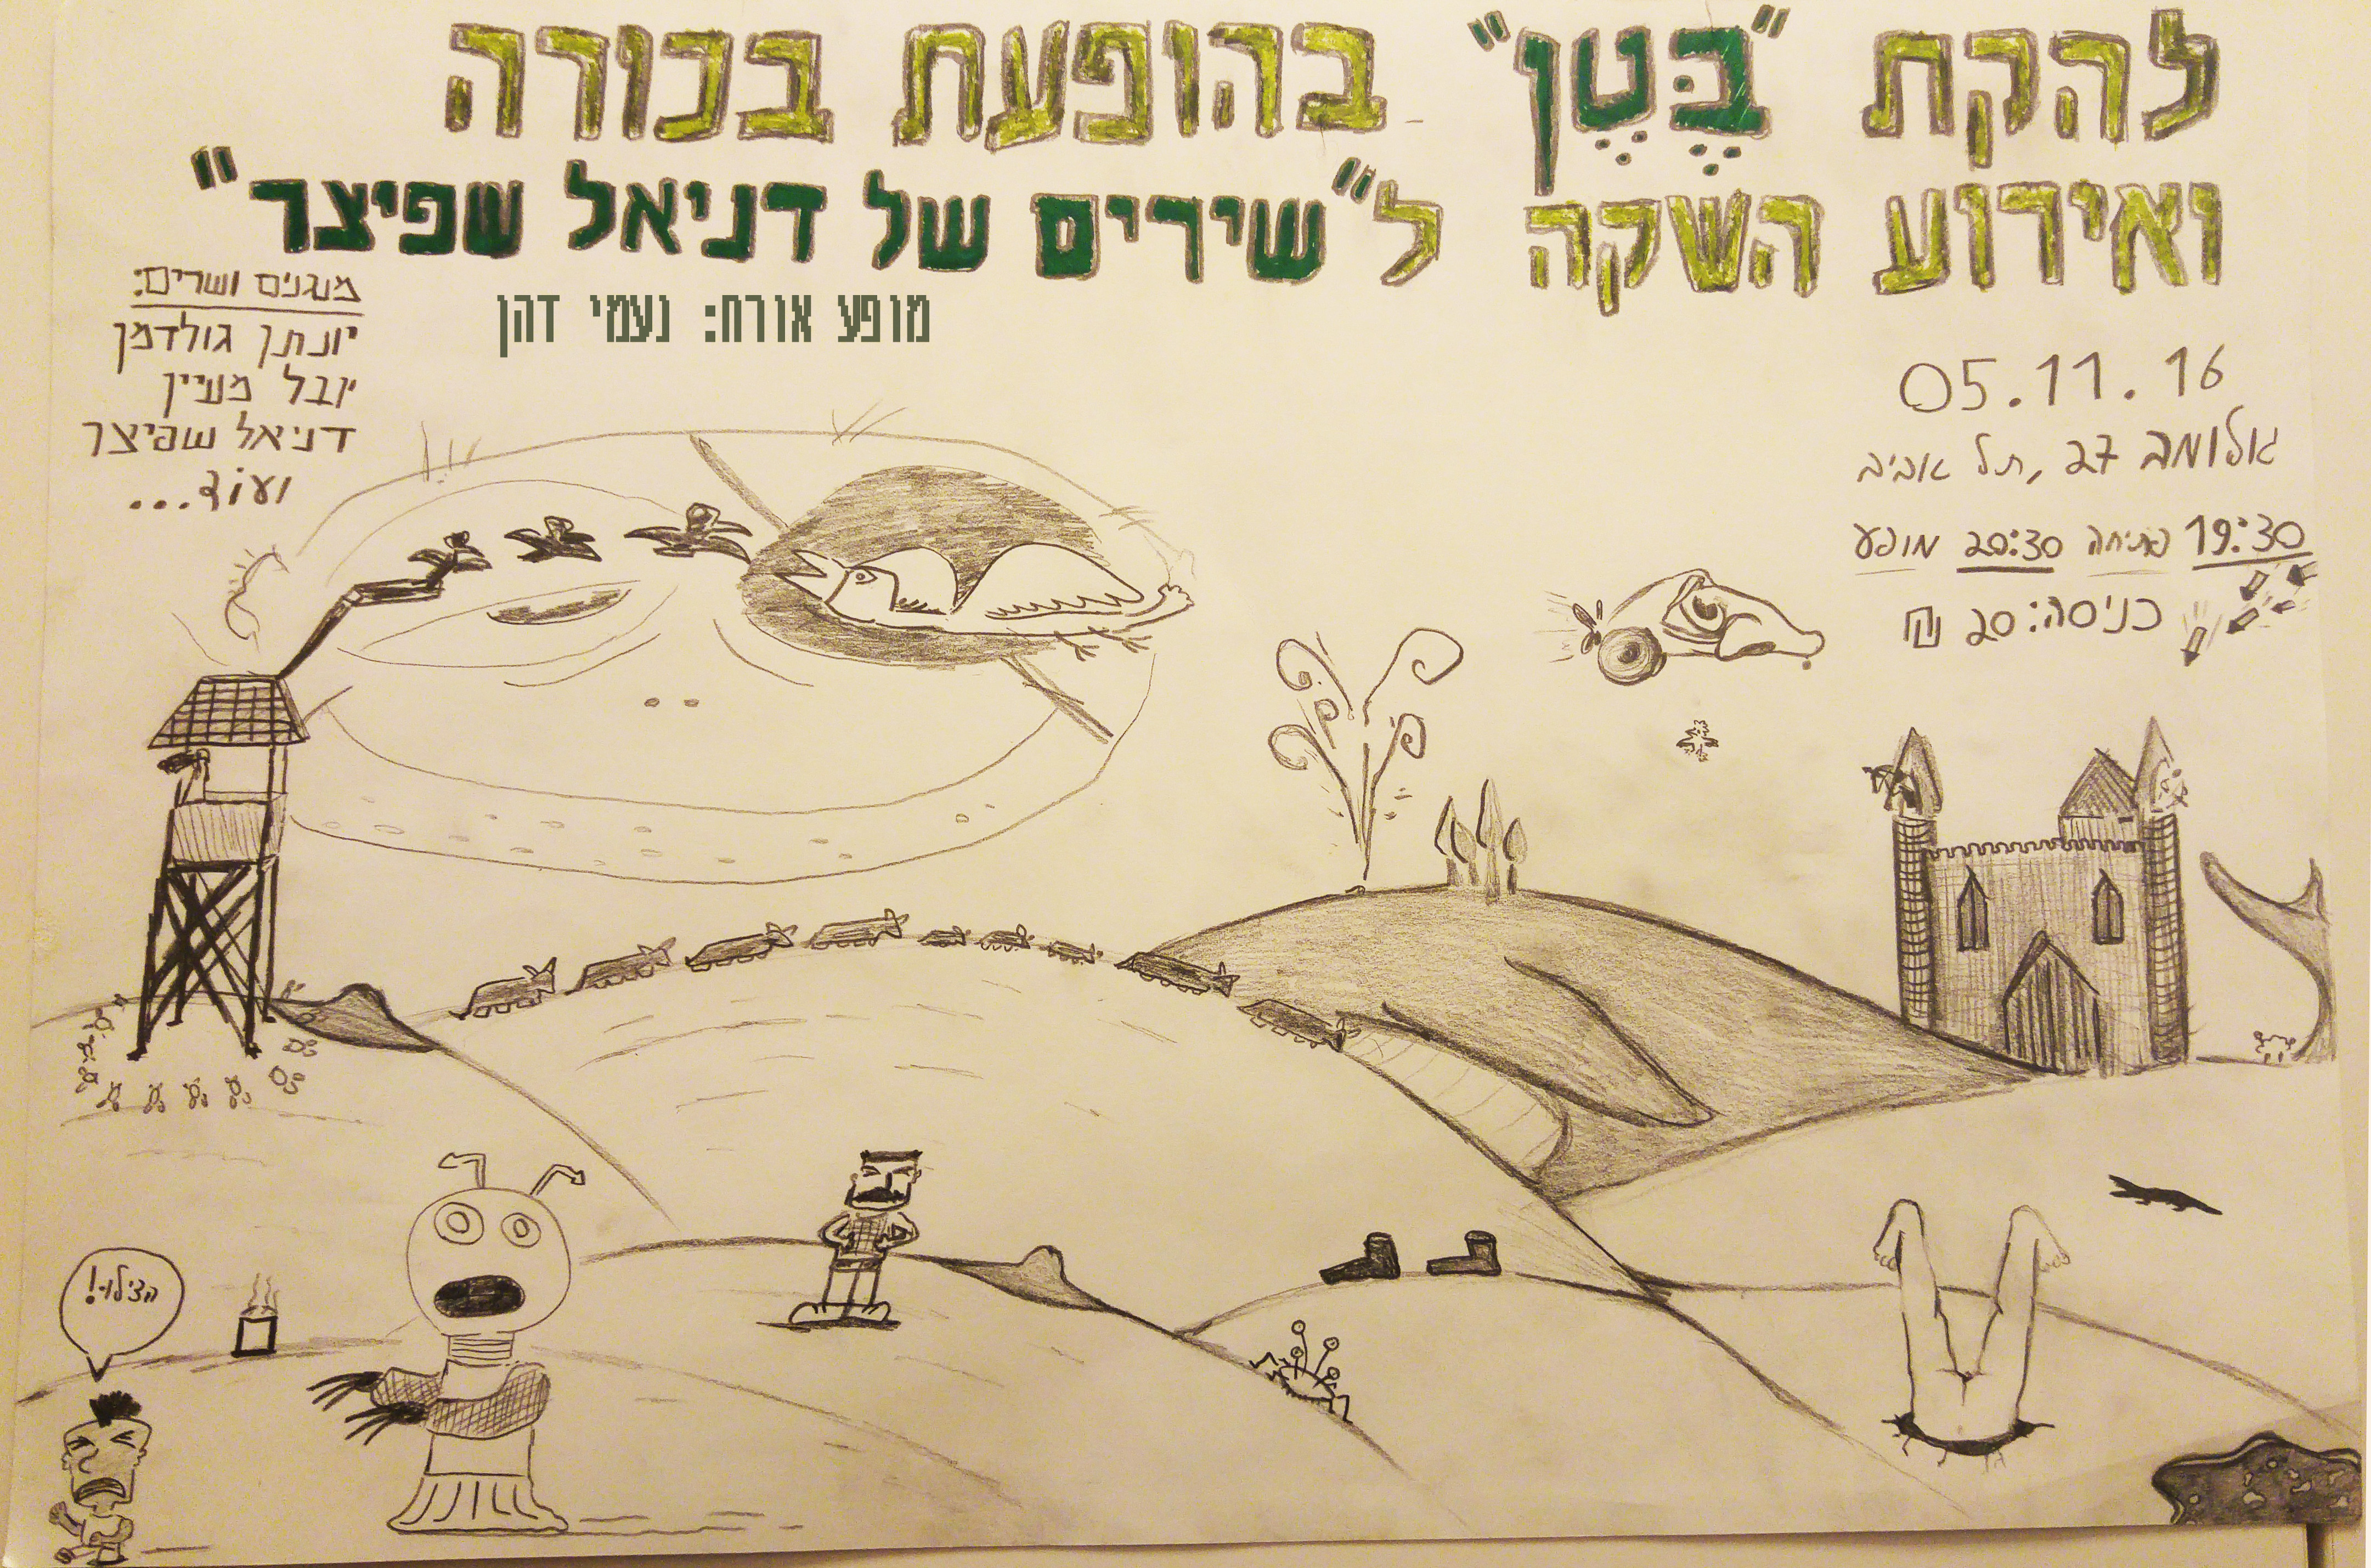 להקת "בֶּטֶן" בהופעת בכורה
ואירוע השקה ל"שירים של דניאל שפיצר"
מופע אורח: נעמי דהן
מנגנים ושרים:
יונתן גולדמן
יובל מעיין
דניאל שפיצר
ועוד...
05.11.16
אלומה 27, תל אביב
19:30 פתיחה 20:30 מופע
כניסה: 20 ₪
הצילו!